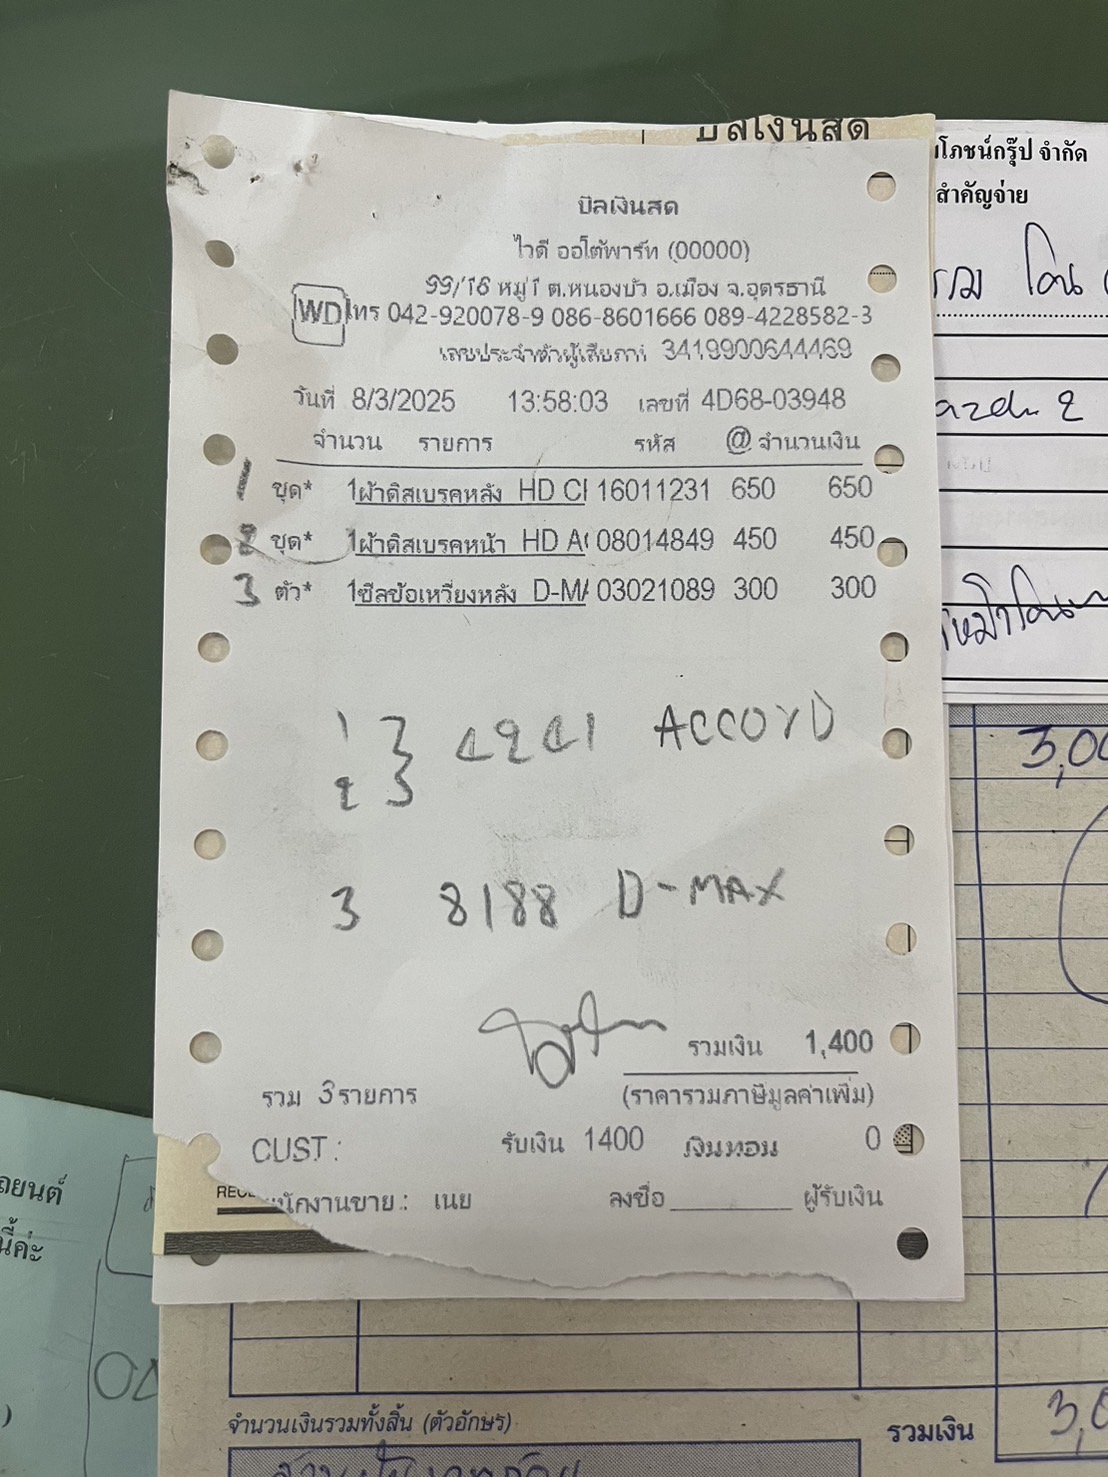 บิลเงินสด
โภชน์กรุ๊ป จำกัด
สำคัญจ่าย
บิลเงินสด
ไวดี ออโต้พาร์ท (00000)
99/16 หมู่1 ต.หนองบัว อ.เมือง จ.อุดรธานี
WD โทร 042-920078-9 086-8601666 089-4228582-3
เลขประจำตัวผู้เสียภาษี 3419900644469
วันที่ 8/3/2025 13:58:03 เลขที่ 4D68-03948
จำนวน รายการ รหัส @ จำนวนเงิน
1 ชุด* 1ผ้าดิสเบรคหลัง HD CI 16011231 650 650
2 ชุด* 1ผ้าดิสเบรคหน้า HD A 08014849 450 450
3 ตัว* 1ซีลข้อเหวี่ยงหลัง D-MA 03021089 300 300
1
2 } 4241 ACCORD
3 8188 D-MAX
รวมเงิน 1,400
รวม 3รายการ (ราคารวมภาษีมูลค่าเพิ่ม)
CUST : รับเงิน 1400 เงินทอน 0
นักงานขาย : เนย ลงชื่อ ผู้รับเงิน
ถยนต์
นี้ค่ะ
จำนวนเงินรวมทั้งสิ้น (ตัวอักษร)
รวมเงิน